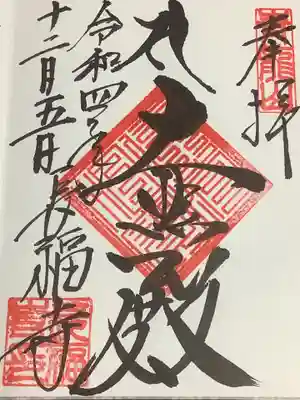 奉拝
大悲殿
令和四年
十二月五日長福寺